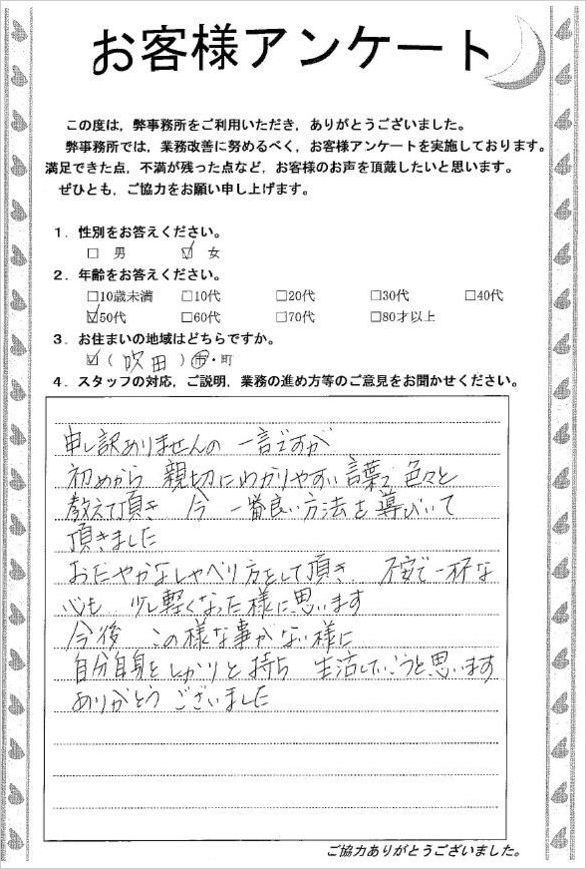 お客様アンケート
この度は，弊事務所をご利用いただき，ありがとうございました。
弊事務所では，業務改善に努めるべく，お客様アンケートを実施しております。
満足できた点，不満が残った点など，お客様のお声を頂戴したいと思います。
ぜひとも，ご協力をお願い申し上げます。
1．性別をお答えください。
□ 男 ☑ 女
2．年齢をお答えください。
□10歳未満 □10代 □20代 □30代 □40代
☑50代 □60代 □70代 □80才以上
3．お住まいの地域はどちらですか。
☑（ 吹田 ）市・町
4．スタッフの対応，ご説明，業務の進め方等のご意見をお聞かせください。
申し訳ありませんの 一言ですが
初めから 親切にわかりやすい言葉で 色々と
教えて頂き 今 一番良い方法を導びいて
頂きました
おだやかなしゃべり方をして頂き 不安で一杯な
心も 少し軽くなった様に思います
今後 この様な事がない様に
自分自身をしっかりと持ち 生活していこうと思います
ありがとう ございました
ご協力ありがとうございました。